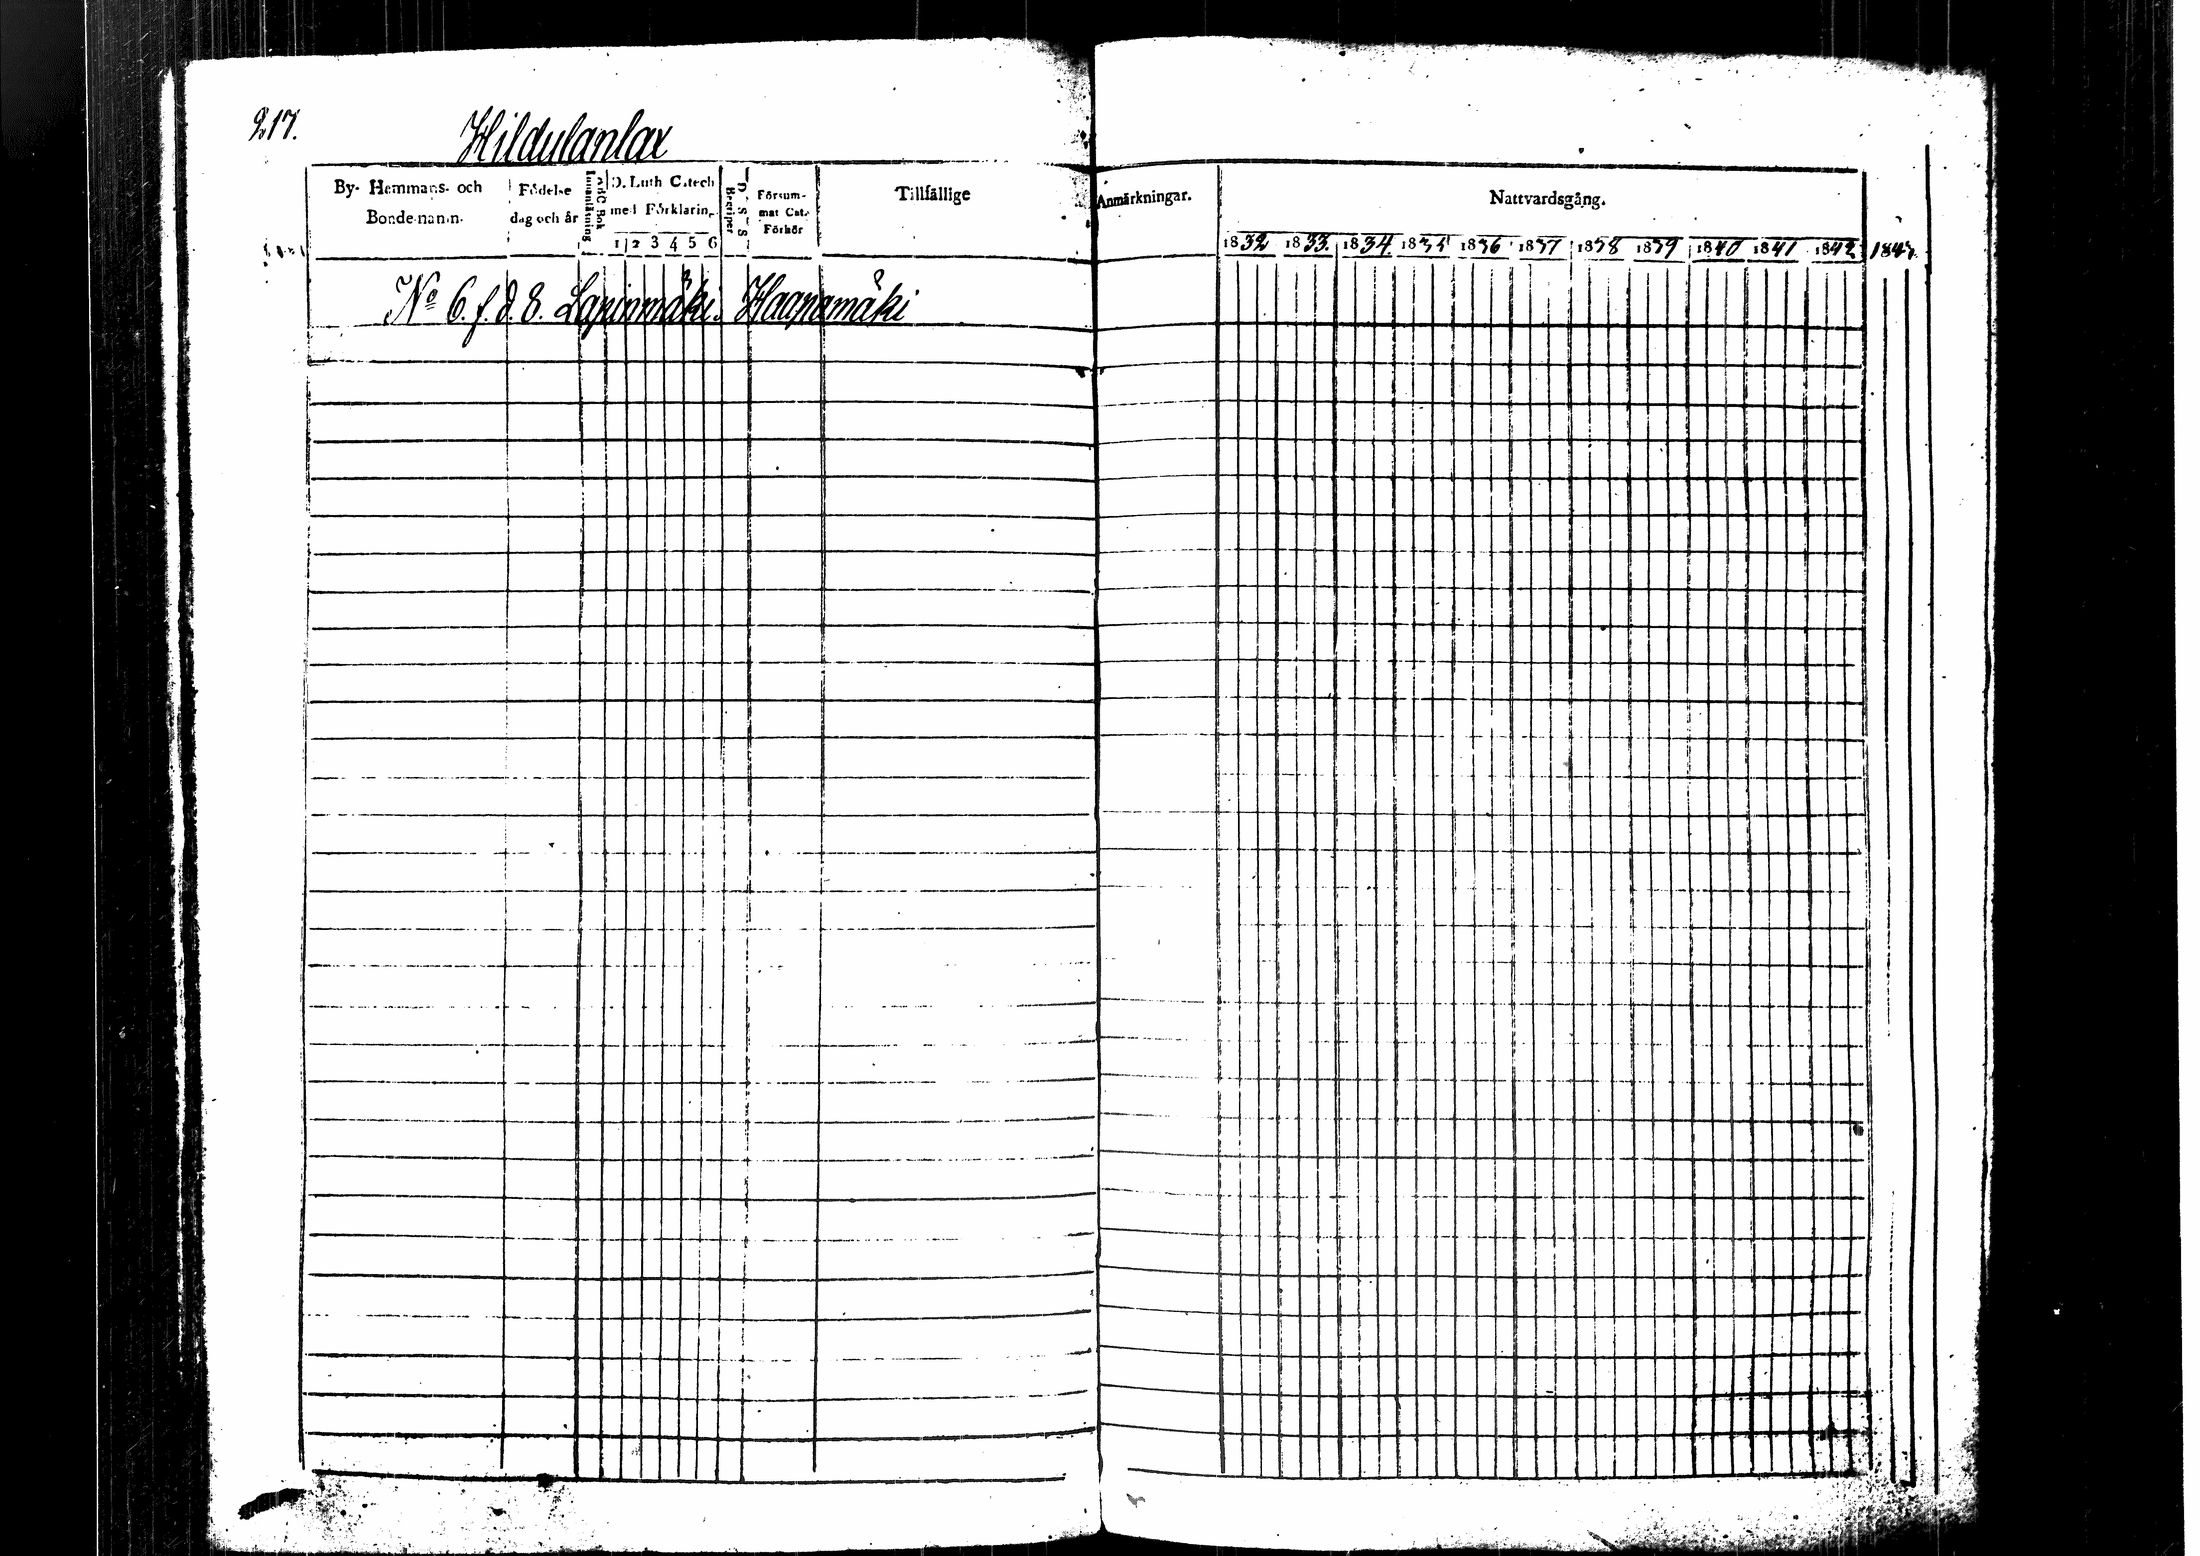 217.
Hildulanlax
By- Hemmans- och Bondenamn.
Födelse dag och år
ABC Bok Innanläsning
D. Luth Catech med Förklaring
1 2 3 4 5 6
D. S. S. Begriper
Försummat Cat. Förhör
Tillfällige Anmärkningar.
Nattvardsgång.
1832 1833. 1834. 1835 1836 1837 1838 1839 1840 1841 1842 1843.
No 6. f. d. 8. Lapinmäki. Haapamäki